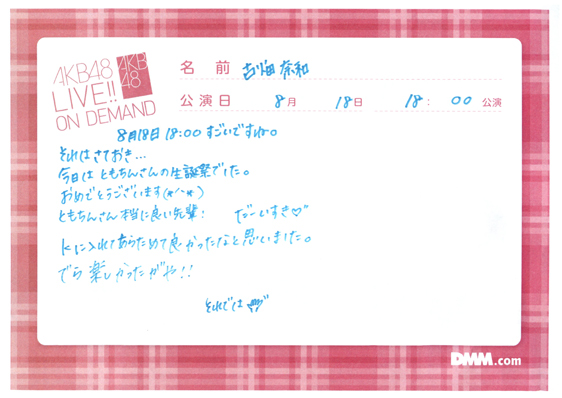 AKB48
LIVE!!
ON DEMAND
AKB
48
名前 古畑奈和
公演日 8月 18日 18:00 公演
8月18日 18:00 すごいですね。
それはさておき...
今日は ともちんさんの生誕祭でした。
おめでとうございます(*^^*)
ともちんさん本当に良い先輩! だーいすき♡
Kに入れてあらためて良かったなと思いました。
でら楽しかったがや!!
それでは
DMM.com